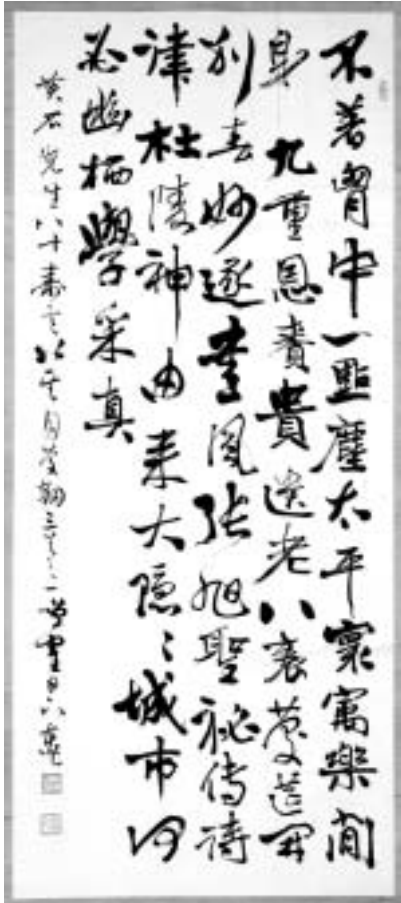 不著胷中一點塵太平寰寓樂閒
身九重恩賚貴遺老八袠慶筵開
別春妙逐書風張旭聖秘傳詩
律杜陵神由来大隠々城市何
必幽栖學采真
黄石先生八十寿